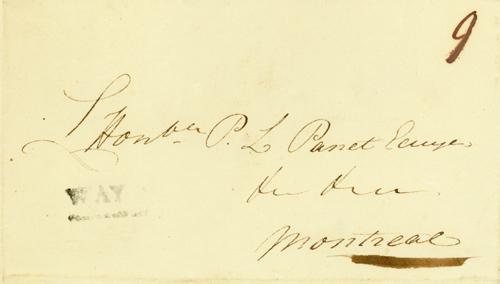 9
L'Honble P. L Panet Ecuyer
WAY
Montreal